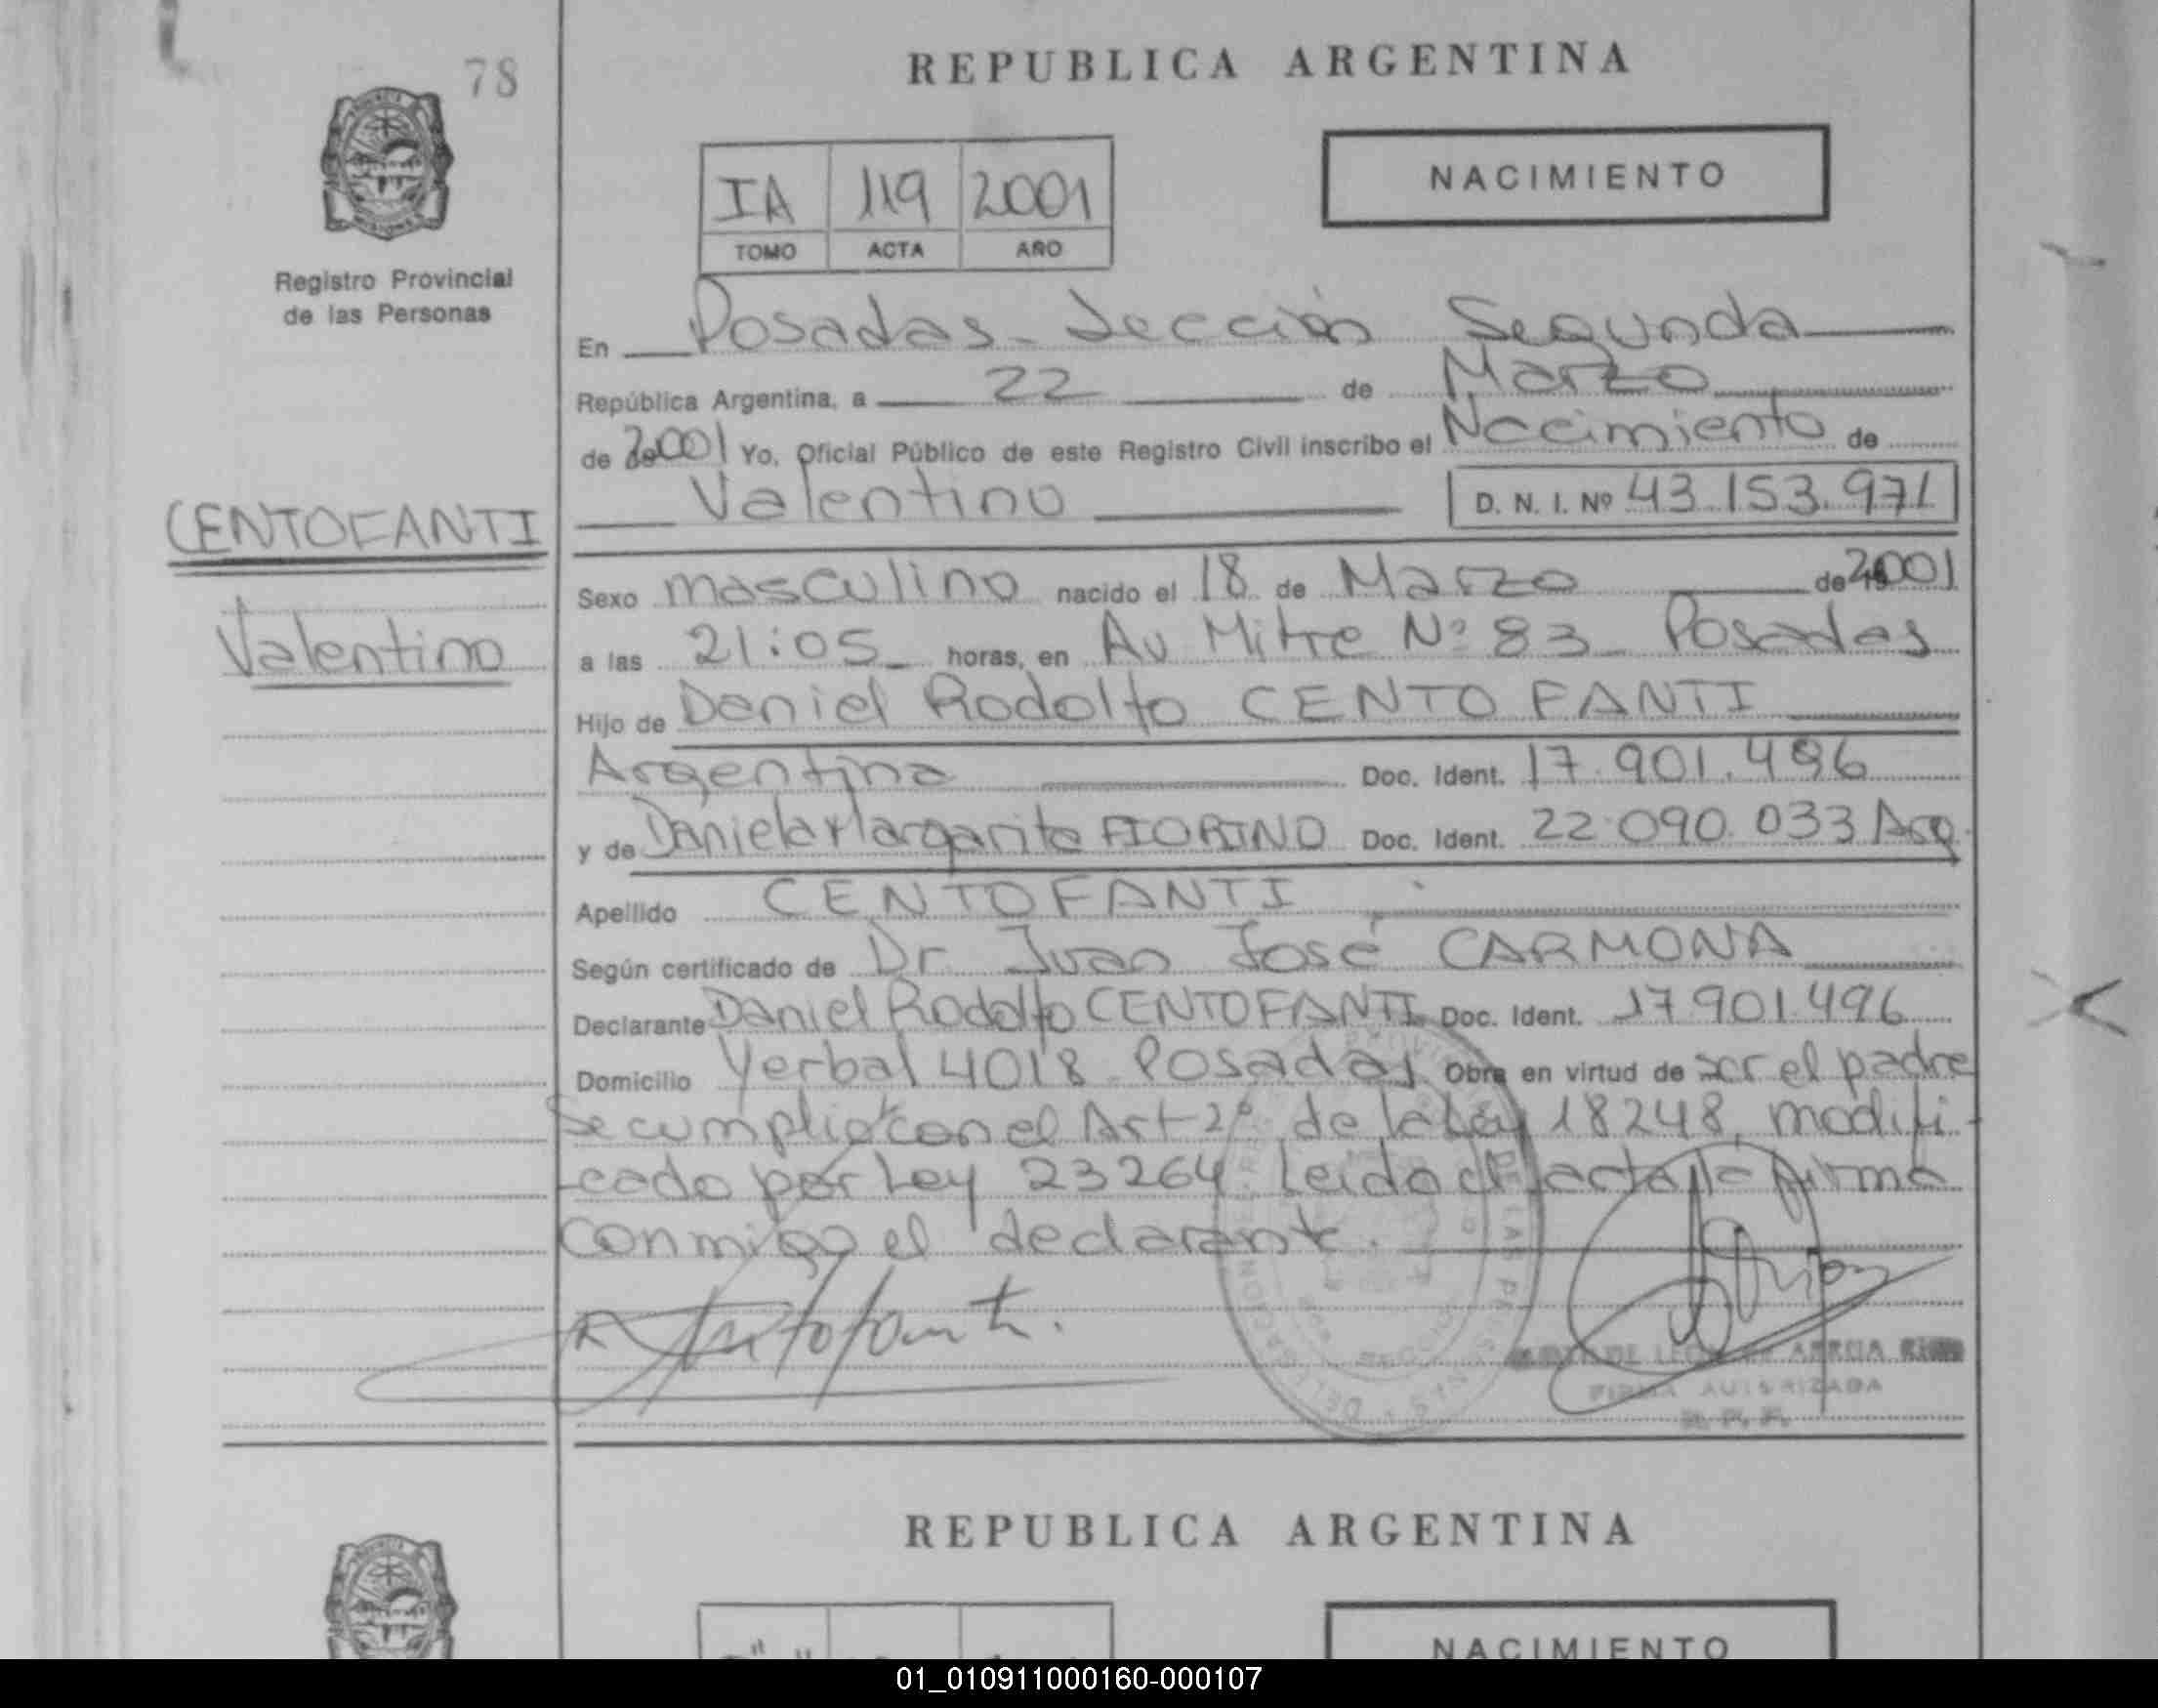 78
REPUBLICA ARGENTINA
NACIMIENTO
IA 119 2001
TOMO ACTA AÑO
Registro Provincial
de las Personas
En Posadas - Sección Segunda
República Argentina, a 22 de Marzo
de 2001 Yo, Oficial Público de este Registro Civil inscribo el Nacimiento de
Valentino D. N. I. Nº 43.153.971
CENTOFANTI
Valentino
Sexo masculino nacido el 18 de Marzo de 2001
a las 21:05 horas, en Av Mitre Nº 83 - Posadas
Hijo de Daniel Rodolfo CENTOFANTI
Argentina Doc. Ident. 17.901.496
y de Daniela Margarita FIORINO Doc. Ident. 22.090.033 Arg.
Apellido CENTOFANTI
Según certificado de Dr. Juan José CARMONA
Declarante Daniel Rodolfo CENTOFANTI Doc. Ident. 17.901.496
Domicilio Yerbal 4018 - Posadas Obra en virtud de ser el padre
Se cumplió con el Art 2º de la Ley 18248, modifi-
cado por Ley 23264. Leido el acta la firma
conmigo el declarante.
FIRMA AUTORIZADA
REPUBLICA ARGENTINA
NACIMIENTO
01_010911000160-000107